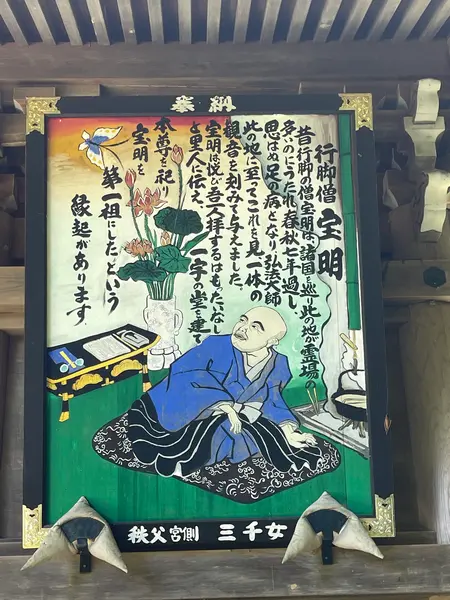 奉納
行脚僧 宝明
昔行脚の僧宝明は、諸国を巡り此の地が霊場の
多いのにうたれ春秋七年過し
思はぬ足の病となり弘法大師
此の地に至ってこれを見一体の
観音を刻みて与えました。
宝明は悦び吾一人拝するはもったいなし
と里人に伝え、一宇の堂を建て
本尊を祀り
宝明を
第一祖にした。という
縁起があります
秩父宮側 三千女